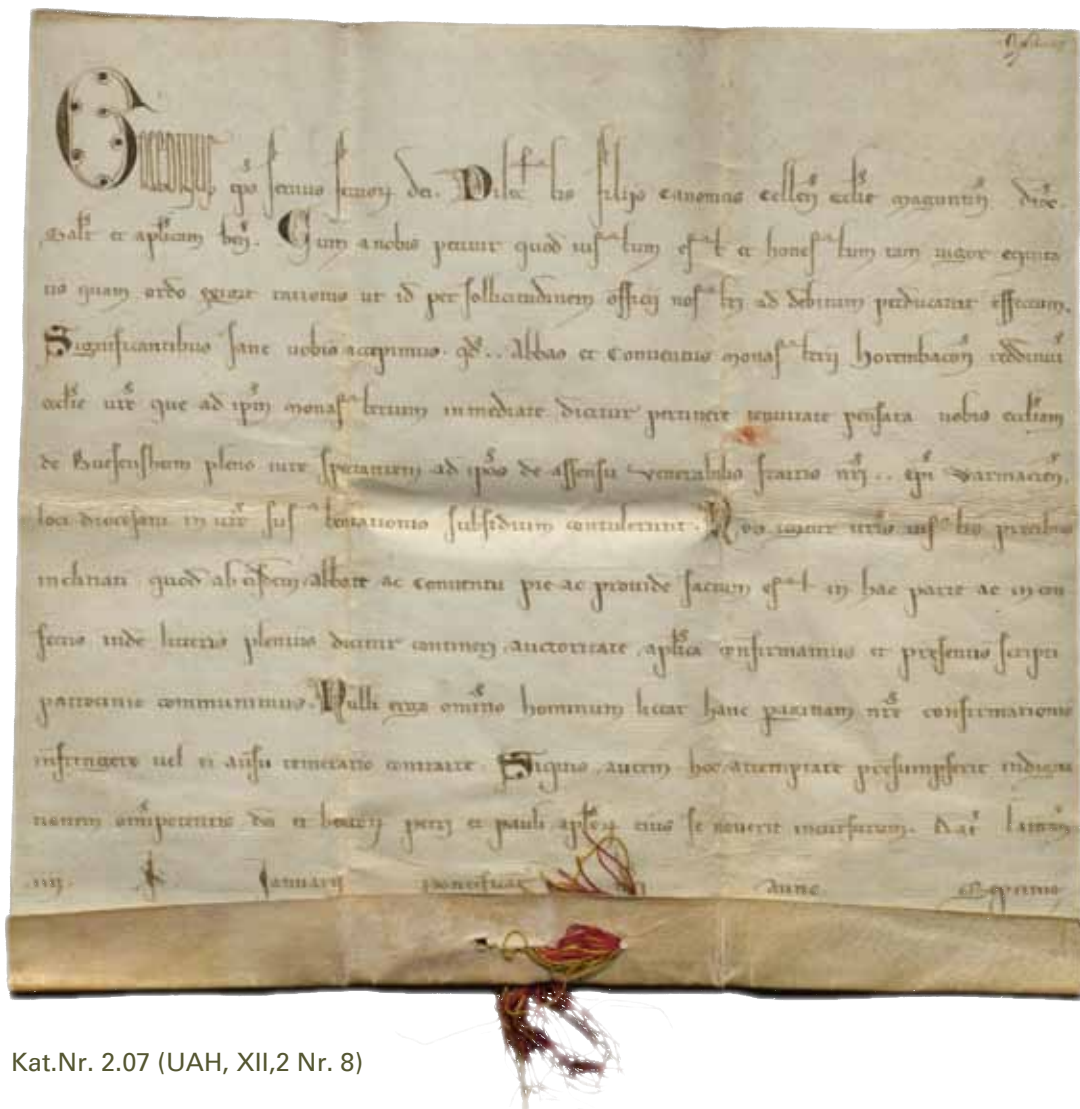 Gregorius ep̄s seruus seruoꝝ dei. Dilectis filijs Canonicis Cellen̄ ecclīe Maguntin̄ dioc̄.
Salt̄ et aplīcam ben̄. Cum a nobis petitur quod iustum est et honestum tam uigor equita
tis quam ordo exigit rationis ut id per sollicitudinem officij nostri ad debitum perducatur effectum.
Significantibus sane uobis accepimus. qđ .. Abbas et Conuentus monasterij Horembacen̄
ecclīe ur̄e que ad ip̄m monasterium inmediate dicitur pertinere tenuitate pensata uobis ecclīam
de pleno iure spectantem ad ip̄os de assensu venerabilis fratris nr̄i .. ep̄i Warmacien̄.
loci diocesani in ur̄e sustentationis subsidium contulerunt. Nos igitur ur̄is iustis precibus
inclinati quod ab eisdem Abbate ac Conuentu pie ac prouide factum est in hac parte ac in con
fectis inde litteris plenius dicitur contineri, auctoritate aplīca confirmamus et presentis scripti
patrocinio communimus. Nulli ergo omīno hominum liceat hanc paginam nr̄e confirmationis
infringere uel ei ausu temerario contraire. Siquis autem hoc attemptare presumpserit indigna
tionem om̄ipotentis dei et beatoꝝ petri et pauli aplōꝝ eius se nouerit incursurum. Dat̄ Lateran̄
iiij. kl̄ Januarij Pontificat Anno Septimo
Kat.Nr. 2.07 (UAH, XII,2 Nr. 8)